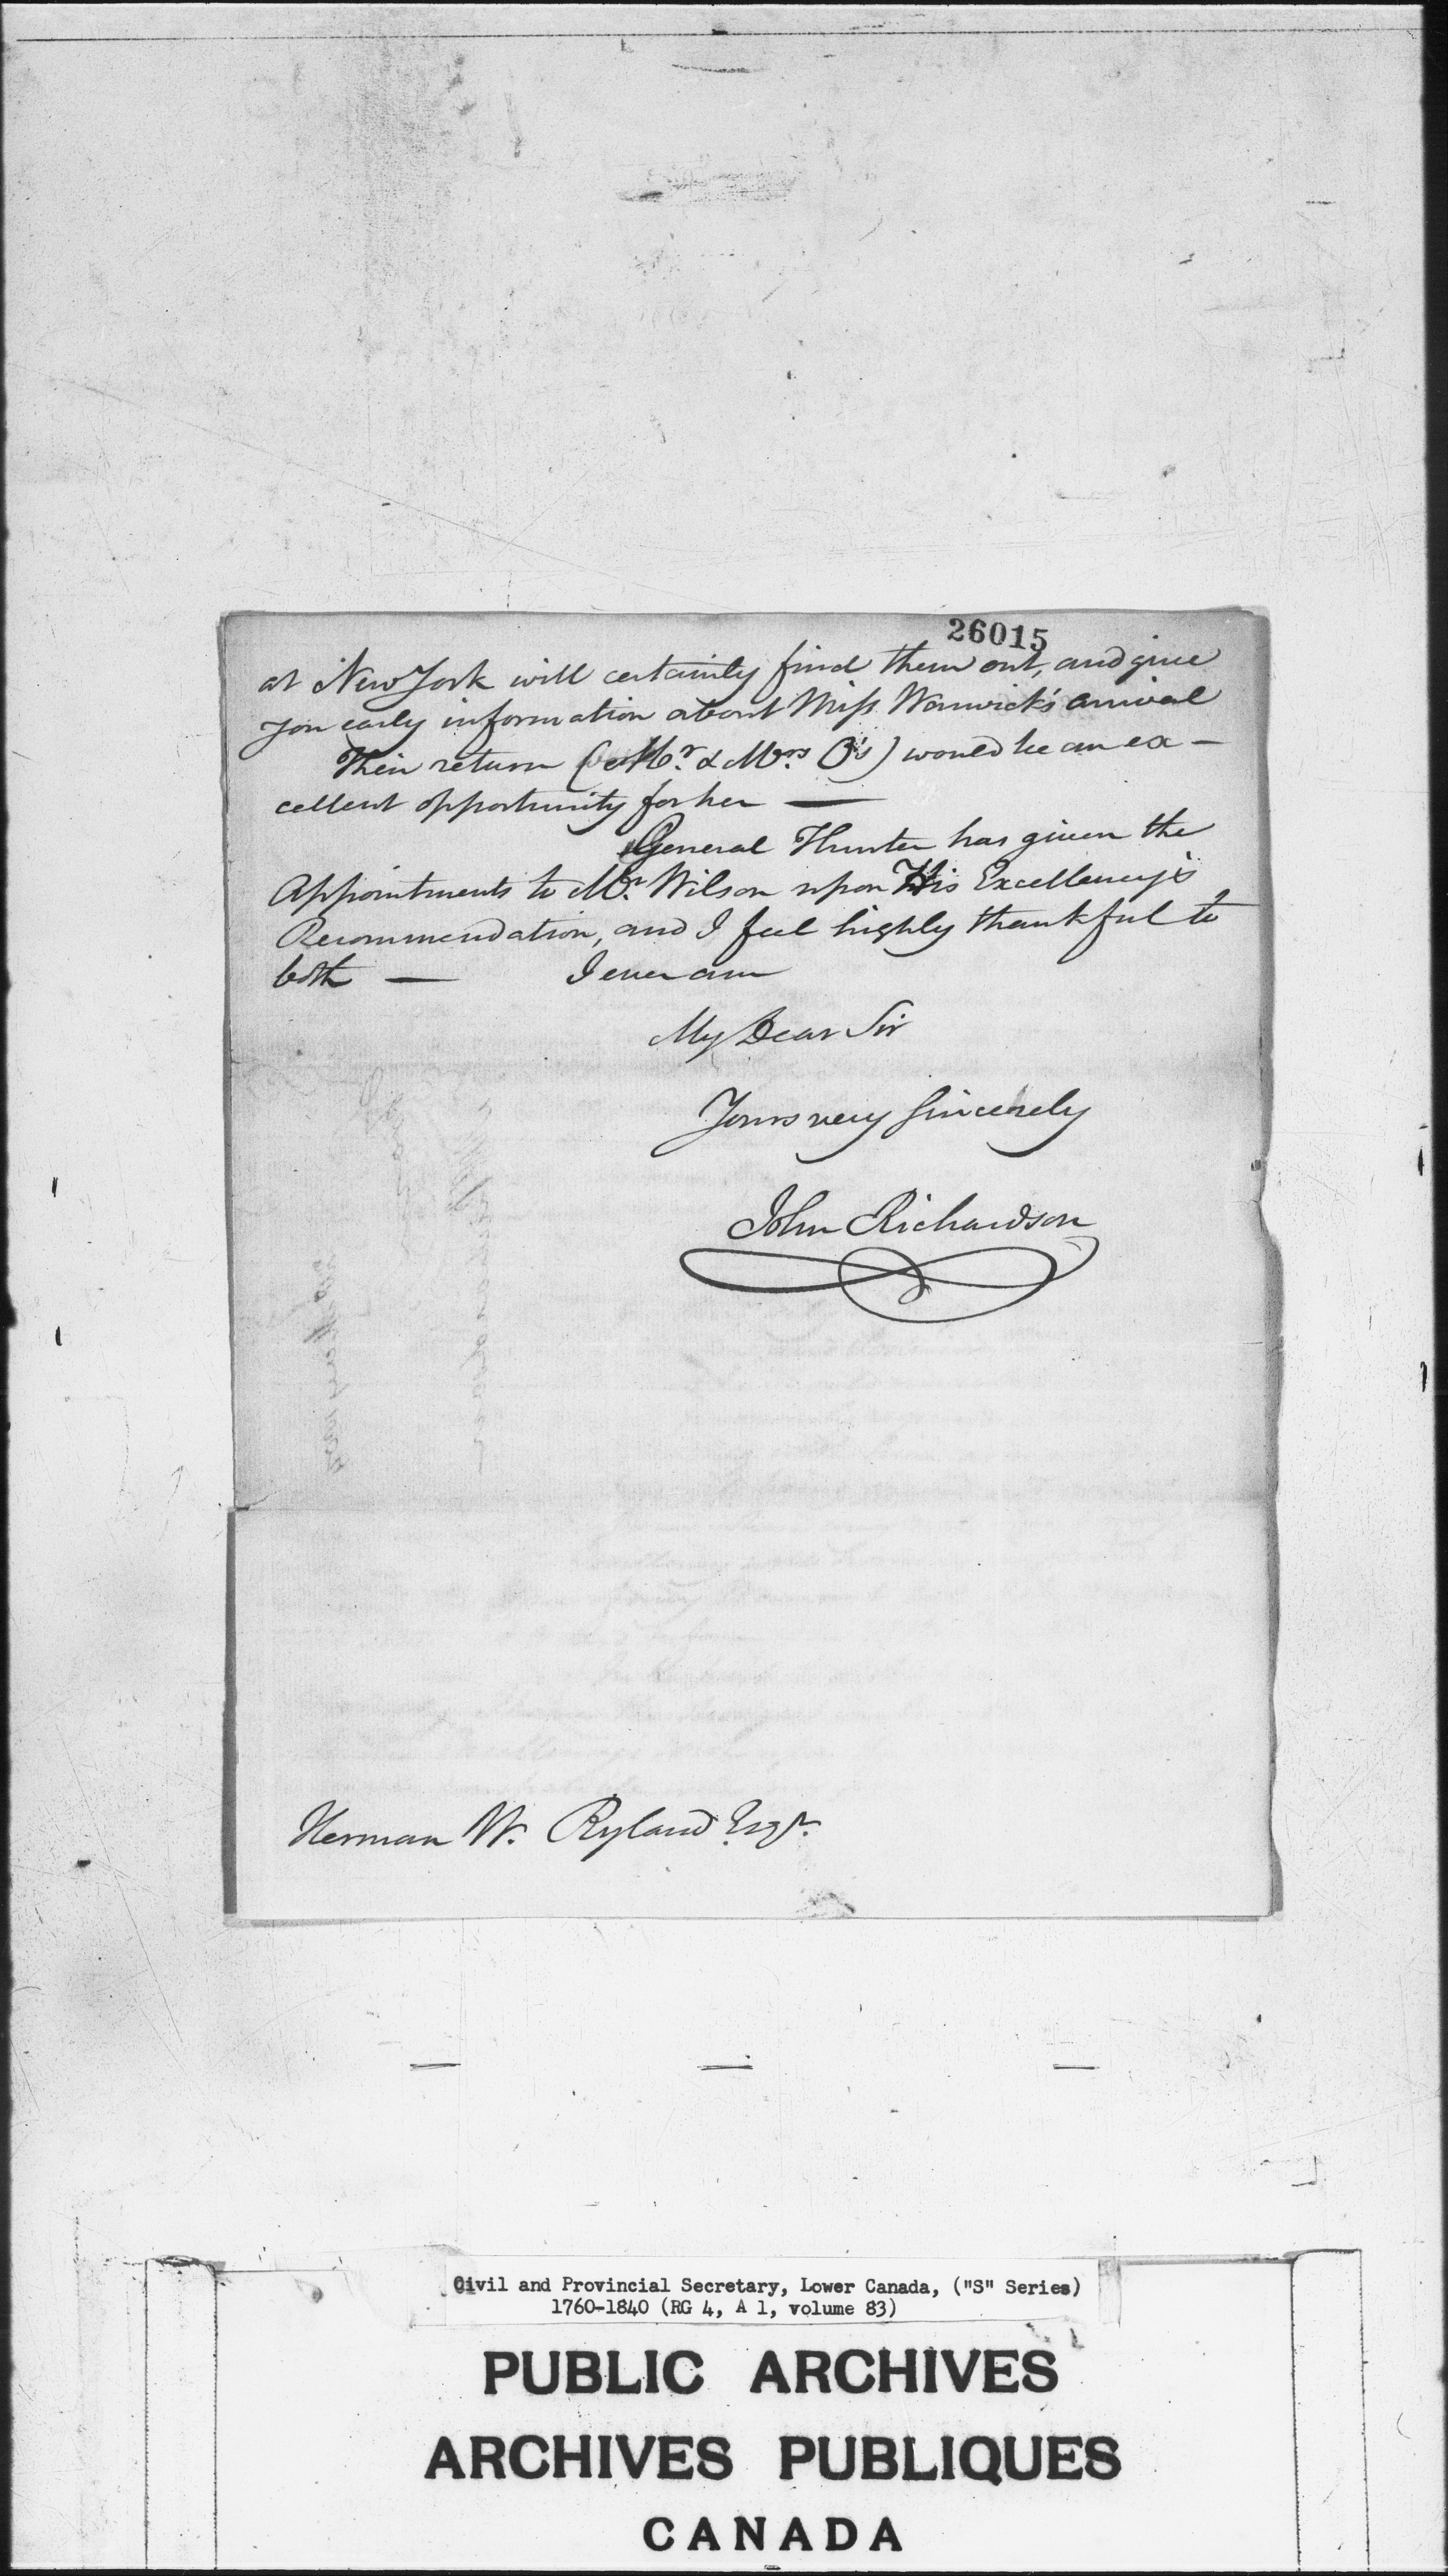 26015
at New York will certainly find them out, and give
you early information about Miss Warwick's arrival
Their return (Mr. & Mrs. O's) would be an ex-
cellent opportunity for her —
General Hunter has given the
Appointments to Mr. Wilson upon His Excellency's
Recommendation, and I feel highly thankful to
both — I ever am
My Dear Sir
Yours very Sincerely
John Richardson
Herman W. Ryland Esqr.
Civil and Provincial Secretary, Lower Canada, ("S" Series)
1760-1840 (RG 4, A 1, volume 83)
PUBLIC ARCHIVES
ARCHIVES PUBLIQUES
CANADA